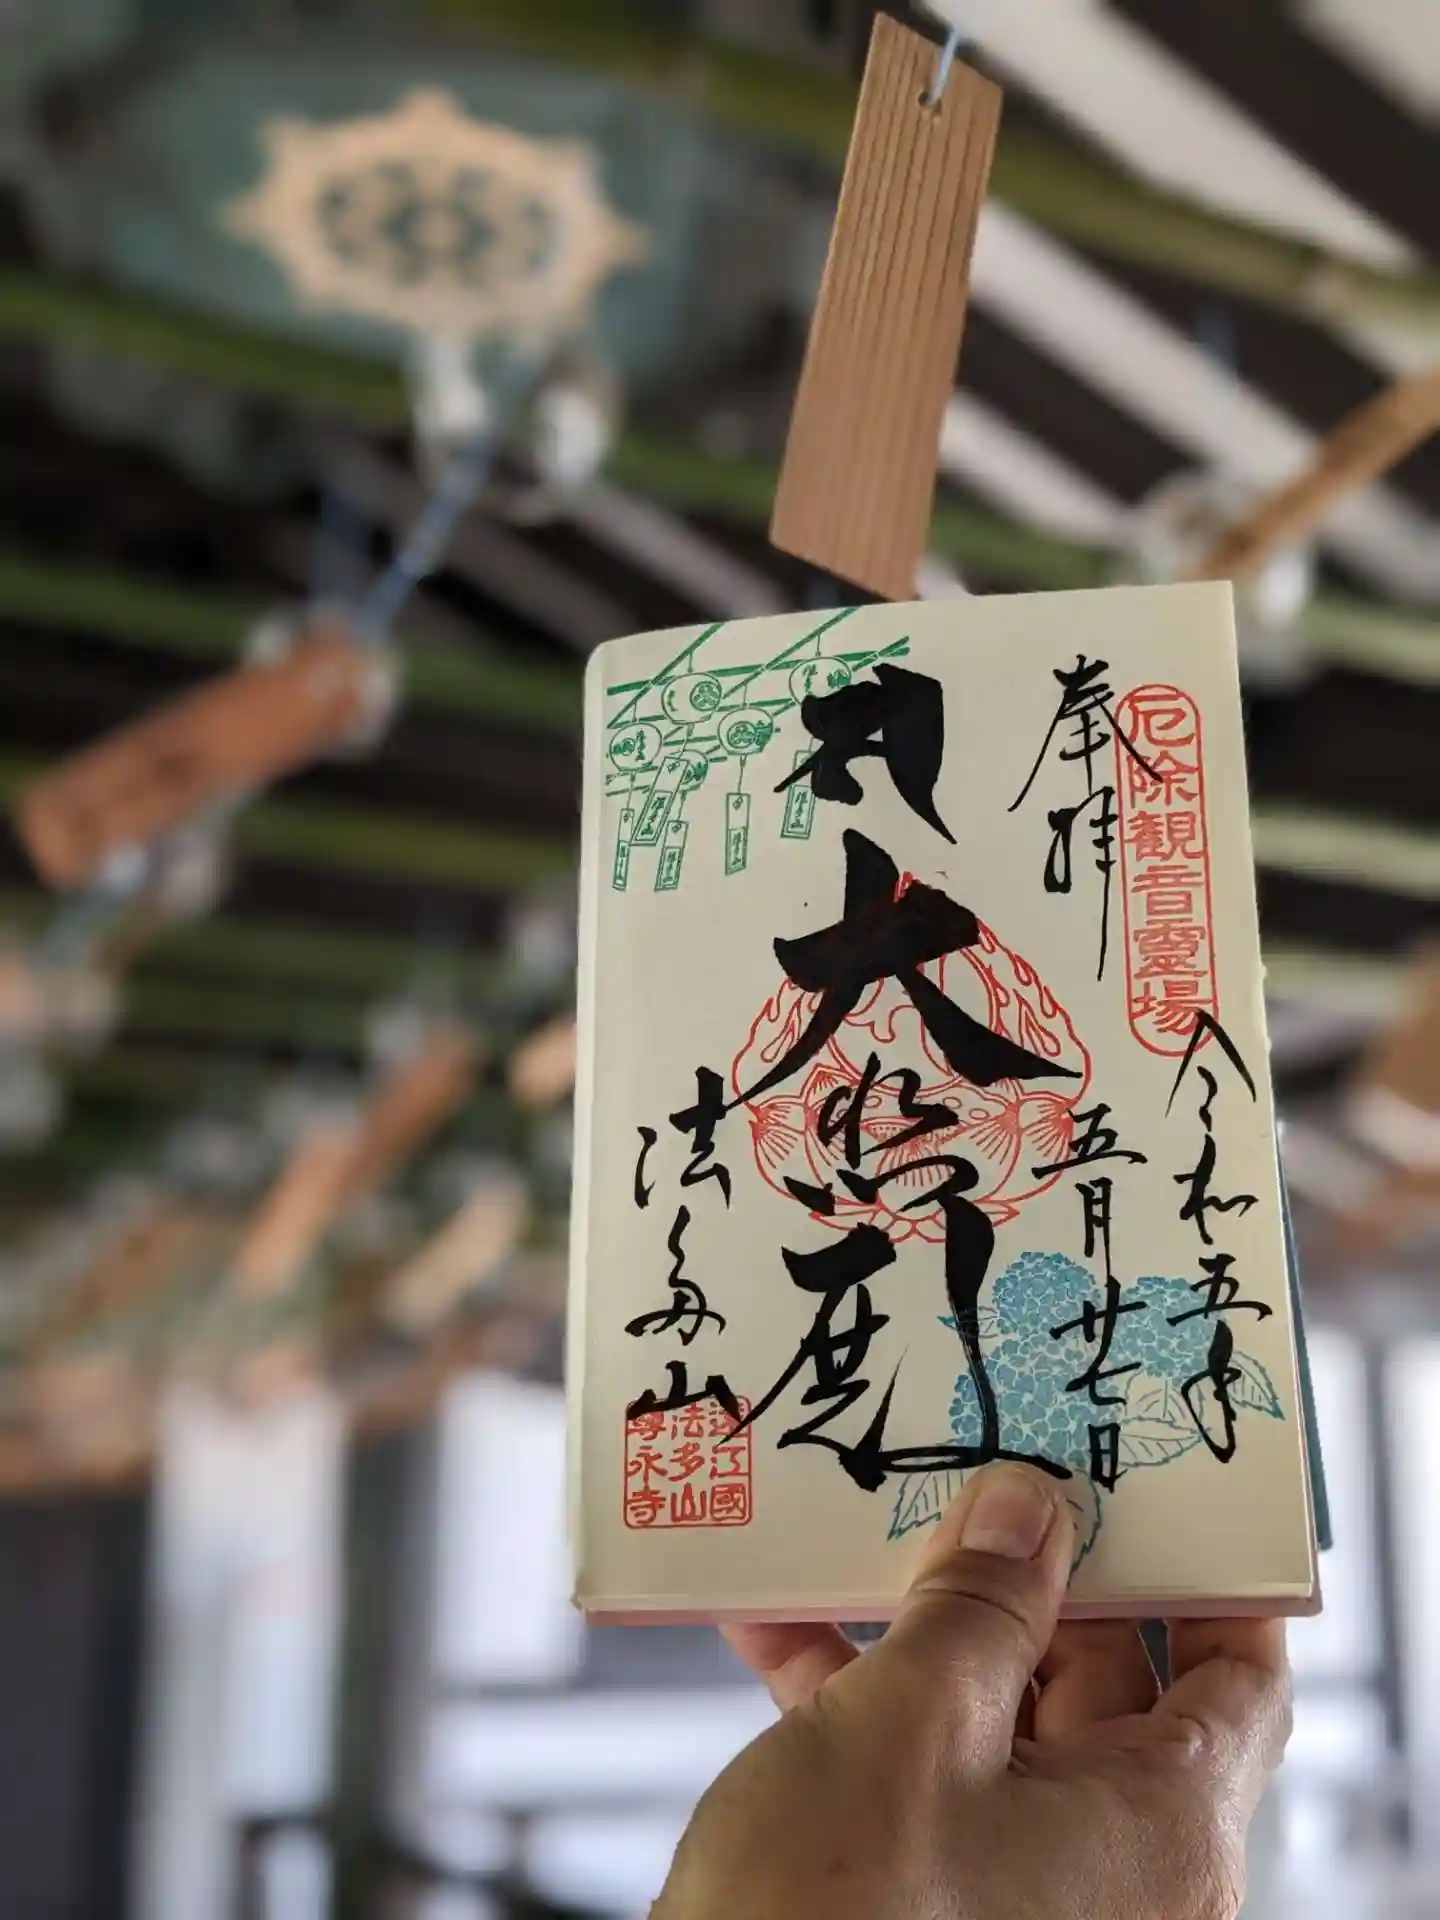 厄除観音霊場
令和五年
奉拝
五月廿七日
大
法多山
遠江國
法多山
尊永寺